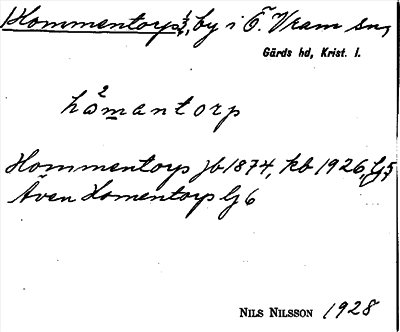 Hommentorp 1/2, by i Ö. Vram sn,
Gärds hd, Krist. l.
hå2mantorp
Hommentorp jb 1874, kb 1926, G5,
Även Homentorp G6
NILS NILSSON 1928